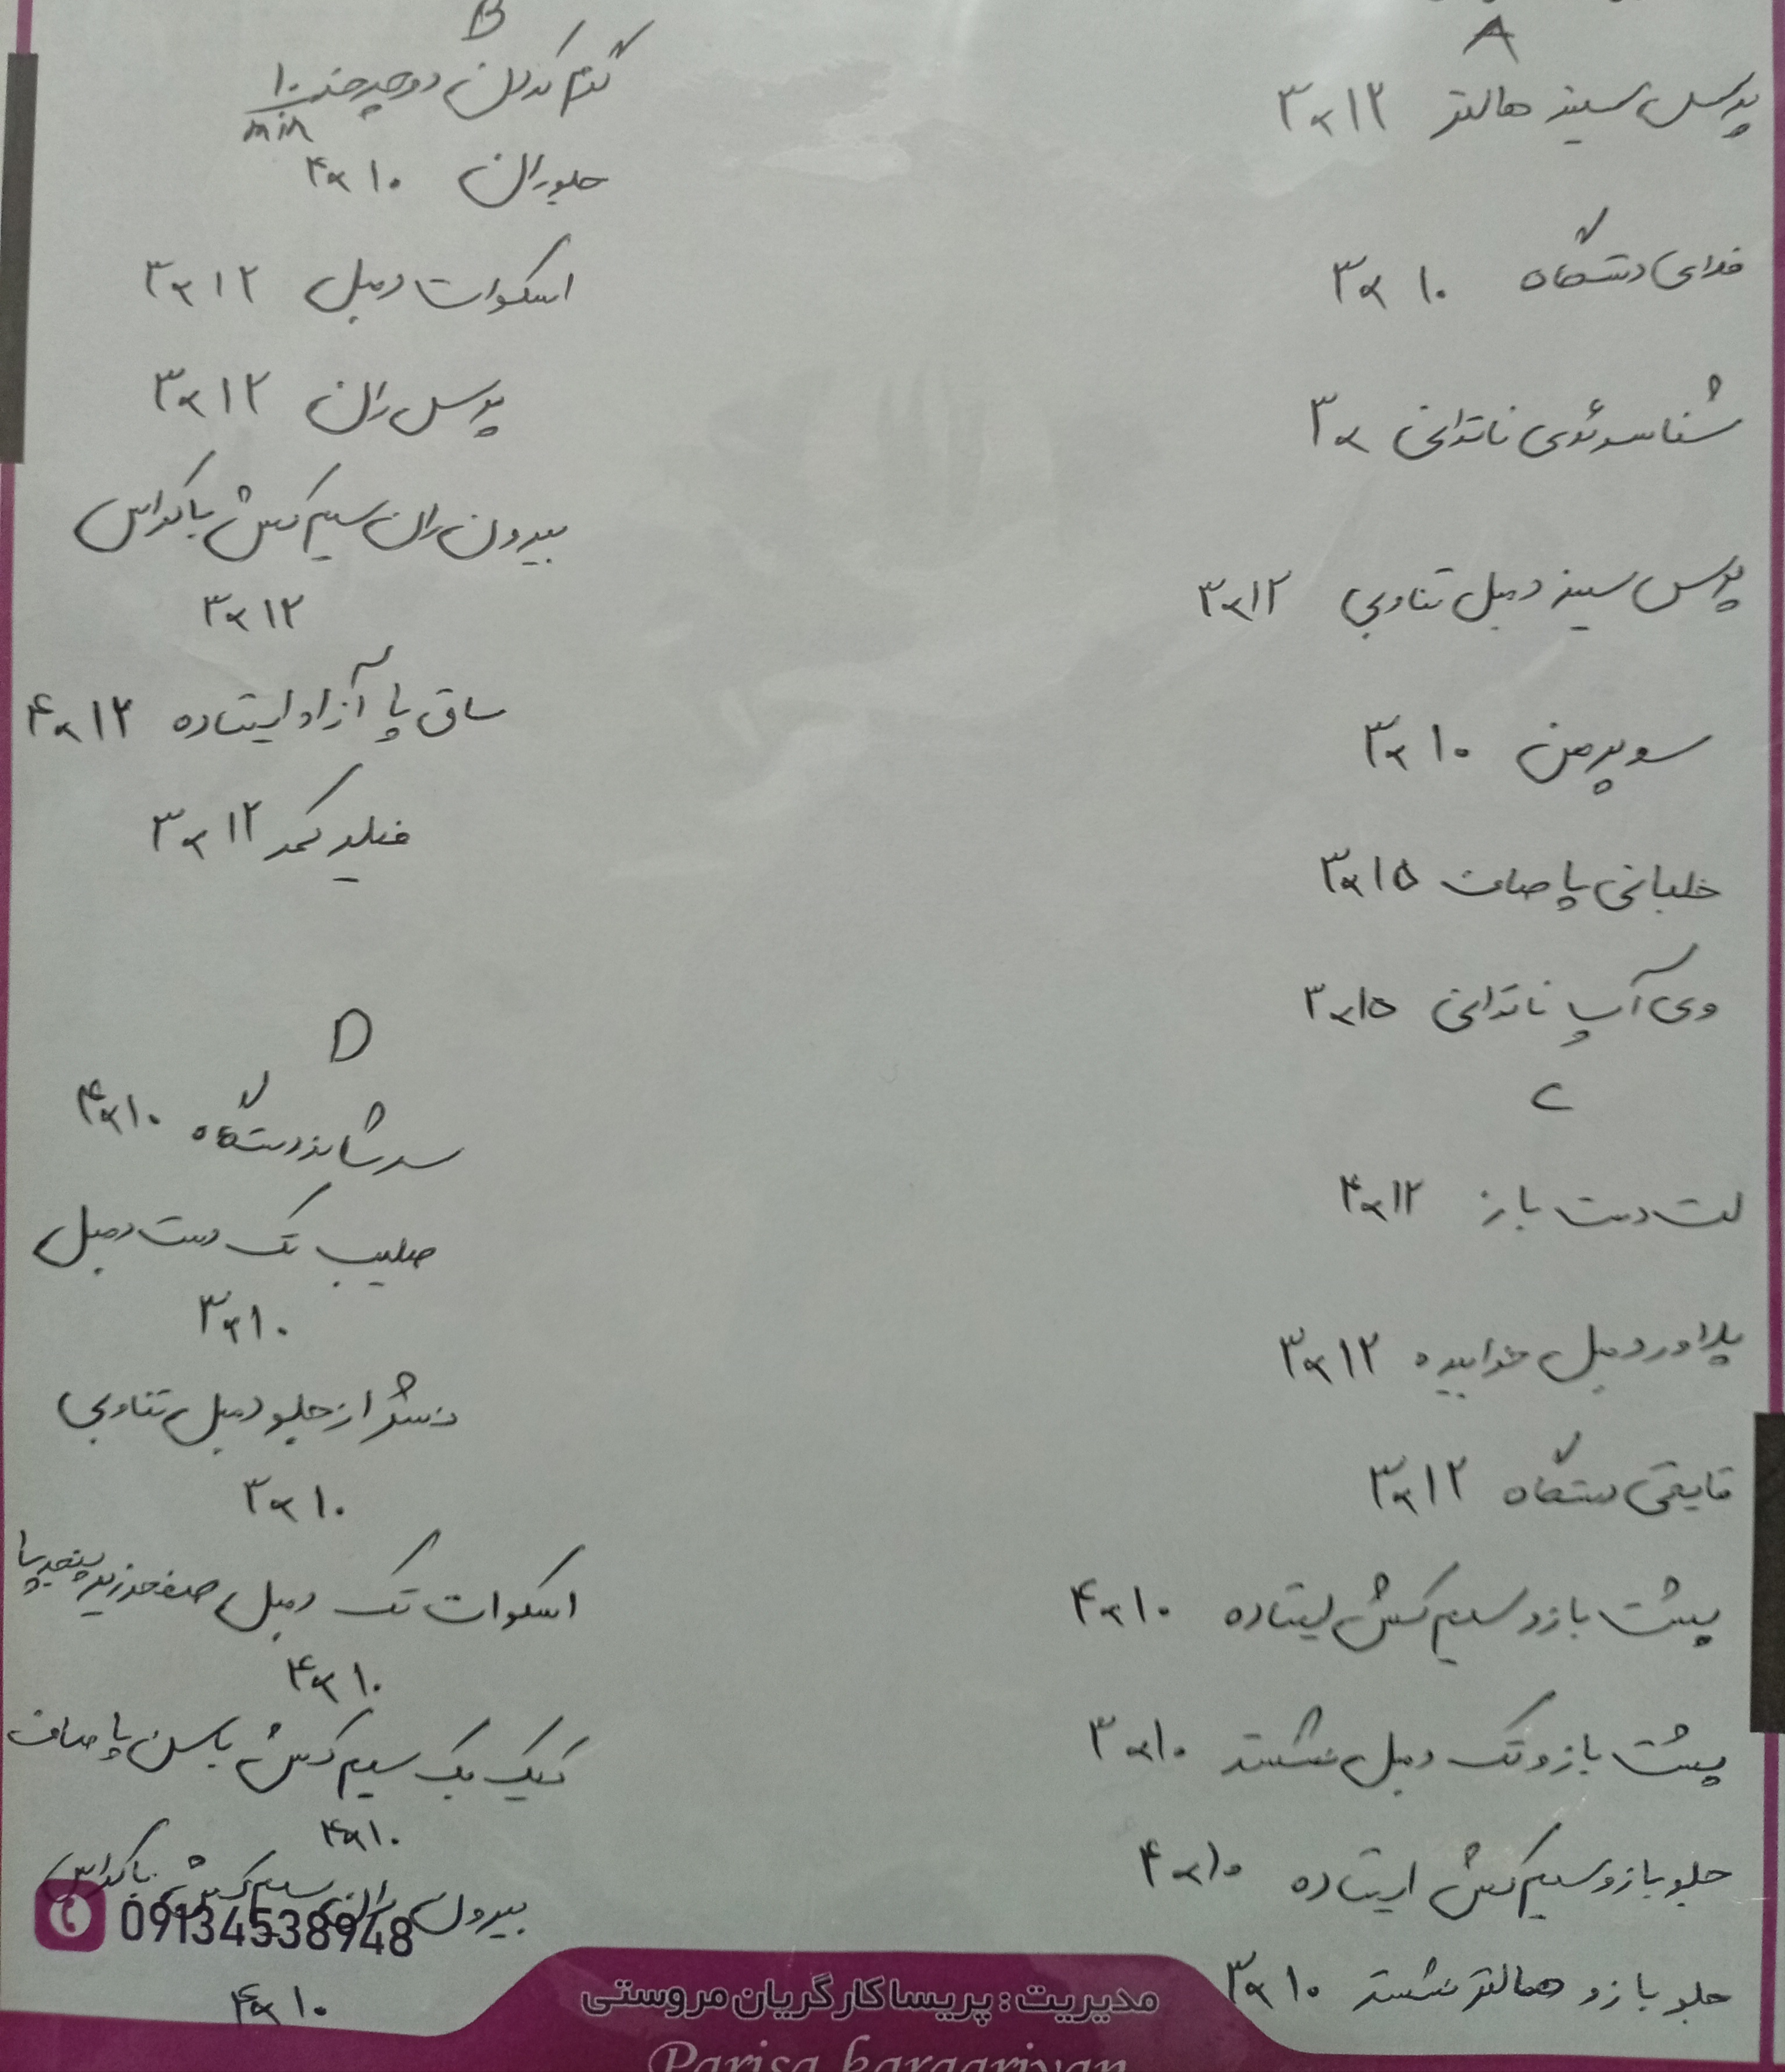 A
پرس سینه هالتر ۳×۱۲
فلای دستگاه ۳×۱۰
شنا سوئدی ناتوانی ۳×
پرس سینه دمبل تناوبی ۳×۱۲
سوپرمن ۳×۱۰
خلبانی پا صاف ۳×۱۵
وی آپ ناتوانی ۳×۱۵
B
گرم کردن دوچرخه ۱۰ min
جلوران ۴×۱۰
اسکوات دمبل ۳×۱۲
پرس ران ۳×۱۲
بیرون ران سیم کش با کراس
۳×۱۲
ساق پا آزاد ایستاده ۴×۱۲
فیله کمر ۳×۱۲
C
لت دست باز ۴×۱۲
پلاور دمبل خوابیده ۳×۱۲
قایقی دستگاه ۳×۱۲
پشت بازو سیم کش ایستاده ۴×۱۰
پشت بازو تک دمبل نشسته ۳×۱۰
جلو بازو سیم کش ایستاده ۴×۱۰
جلو بازو هالتر نشسته ۳×۱۰
D
سرشانه دستگاه ۴×۱۰
صلیب تک دست دمبل
۳×۱۰
نشر از جلو دمبل تناوبی
۳×۱۰
اسکوات تک دمبل صفحه زیر پنجه پا
۴×۱۰
کیک بک سیم کش باسن پا صاف
۴×۱۰
بیرون ران سیم کش با کراس
۴×۱۰
09134538948
مدیریت: پریسا کارگریان مروستی
Parisa kargariyan